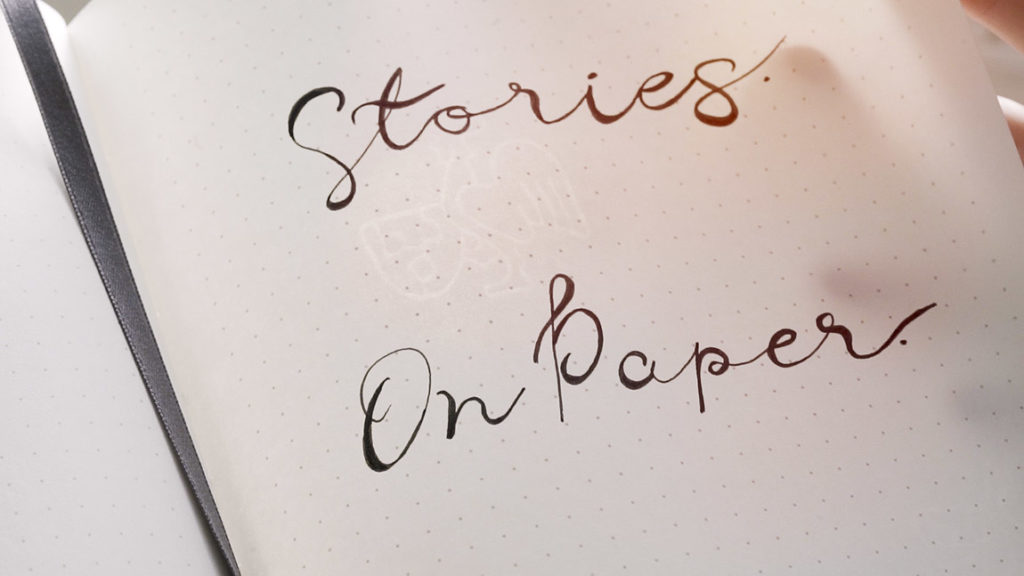 Stories.
On Paper.